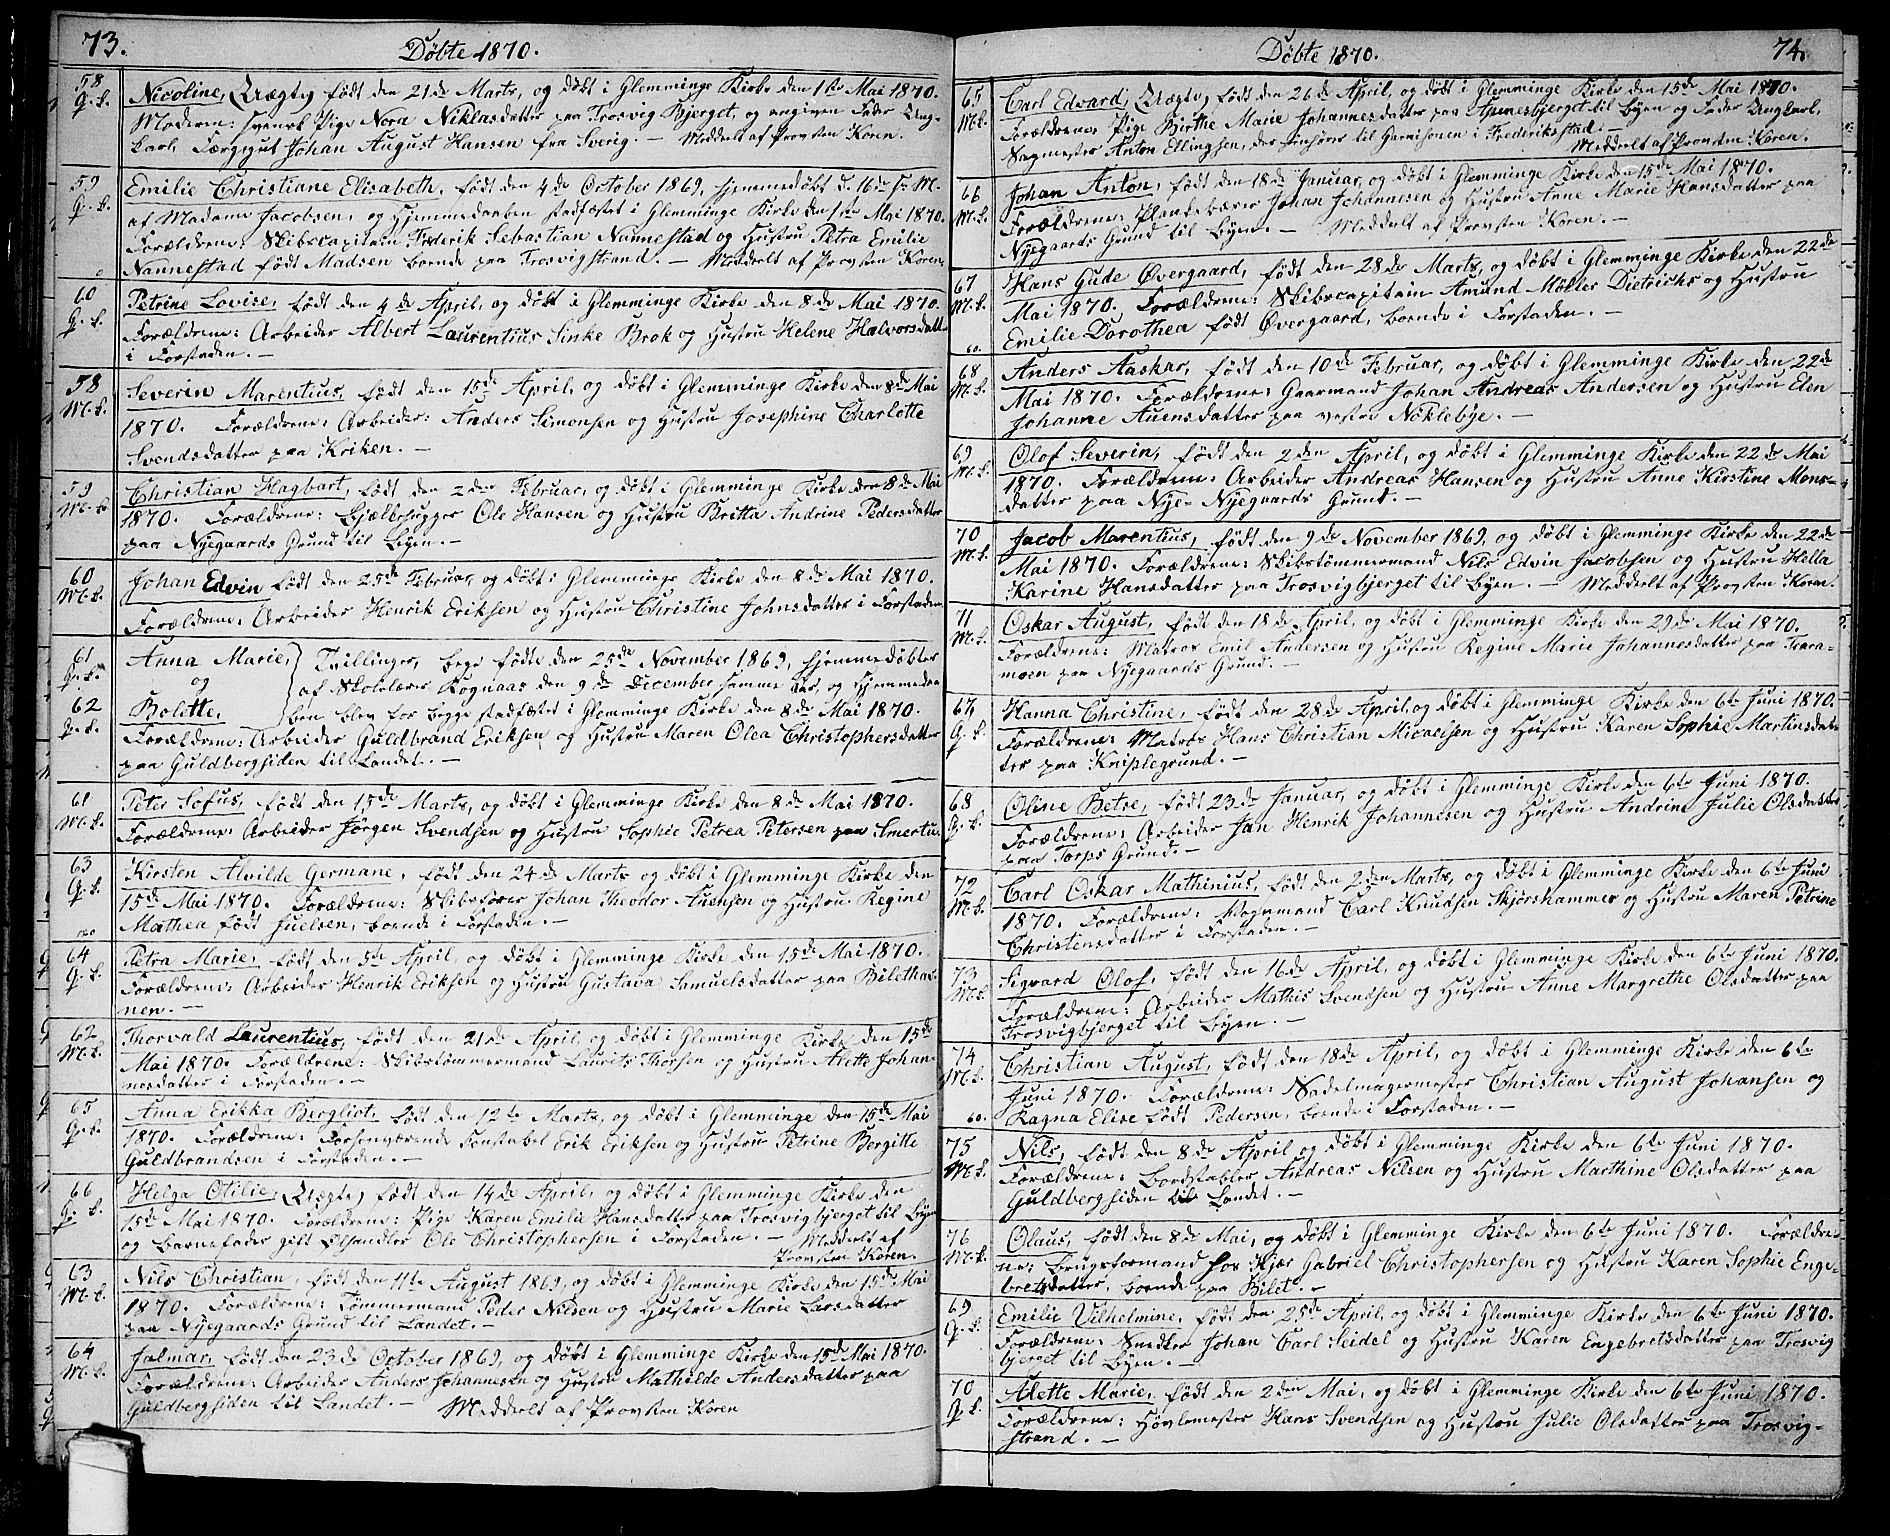 73.
Døbte 1870.
58 Nicoline, (Uægte) født den 21de Marts, og døbt i Glemminge Kirke den 1ste Mai 1870.
Q. K. Moderen: svensk Pige Nora Niklasdatter paa Trosvig Bjerget, og angiven Fader Ung-
karl, Johan August Hansen fra Sverig. — Meddelt af Provsten Koren.
59 Emilie Christiane Elisabeth, født den 4de October 1869, hjemmedøbt d. 16de s. M.
Q. K. af Madame Jacobsen, og Hjemmedaaben stadfæstet i Glemminge Kirke den 1ste Mai 1870.
Forældrene: Skibscapitain Frederik Sebastian Nannestad og Hustru Petra Emilie
Nannestad født Madsen boende paa Trosvigstrand. — Meddelt af Provsten Koren.
60 Petrine Lovise, født den 4de April, og døbt i Glemminge Kirke den 8de Mai 1870.
Q. K. Forældrene: Arbeider Albert Laurentius Sinke Brok og Hustru Helene Halvorsdatt.
i Forstaden. —
58 Severin Marentius, født den 15de April, og døbt i Glemminge Kirke den 8de Mai
M. K. 1870. Forældrene: Arbeider: Anders Simonsen og Hustru Josephine Charlotte
Svendsdatter paa Kriken. —
59 Christian Hagbart, født den 2den Februar, og døbt i Glemminge Kirke den 8de Mai
M. K. 1870. Forældrene: Bjælkehugger Ole Hansen og Hustru Britta Andrine Pedersdatter
paa Nyegaards Grund til Byen. —
60 Johan Edvin født den 25de Februar, og døbt i Glemminge Kirke den 8de Mai 1870.
M. K. Forældrene: Arbeider Henrik Eriksen og Hustru Christine Johnsdatter i Forstaden.
61 Anna Marie, Tvillinger, begge fødte den 25de November 1869, hjemmedøbte
Q. K. og af Skolelærer Rognaas den 9de December samme Aar, og Hjemmedaa
62 Bolette, ben blev for begge stadfæstet i Glemminge Kirke den 8de Mai 1870.
Q. K. Forældrene: Arbeider Guldbrand Eriksen og Hustru Maren Olea Christophersdatter
paa Guldbergsiden til Landet. —
61 Peter Sofus, født den 15de Marts, og døbt i Glemminge Kirke den 8de Mai 1870.
M. K. Forældrene: Arbeider Jørgen Svendsen og Hustru Sophie Petrea Petersen paa Smertu.
63 Kirsten Alvilde Germane, født den 24de Marts og døbt i Glemminge Kirke den
Q. K. 15de Mai 1870. Forældrene: Skibsfører Johan Theodor Auensen og Hustru Regine
Mathea født Juelsen, boende i Forstaden. —
64 Petra Marie, født den 5te April, og døbt i Glemminge Kirke den 15de Mai 1870.
Q. K. Forældrene: Arbeider Henrik Eriksen og Hustru Gustava Samuelsdatter paa Bilethav-
nen. —
62 Thorvald Laurentius, født den 21de April, og døbt i Glemminge Kirke den 15de
M. K. Mai 1870. Forældrene: Skibstømmermand Laurits Thorsen og Hustru Alette Johan-
nesdatter i Forstaden. —
65 Anna Erikka Bergliot, født den 12te Marts, og døbt i Glemminge den 15de Mai
Q. K. 1870. Forældrene: Forhenværende Constabel Erik Eriksen og Hustru Petrine Bergitte
Guldbrandsen i Forstaden. —
66 Helga Otilie, (Uægte) født den 14de April, og døbt i Glemminge Kirke den
Q. K. 15de Mai 1870. Forældrene: Pige Karen Emilie Hansdatter paa Trosvigbjerget til Byen
og Barnefader gift Ølhandler Ole Christophersen i Forstaden. — Meddelt af
Provsten Koren.
63 Nils Christian, født den 11te August 1869, og døbt i Glemminge Kirke den 15de Mai
M. K. 1870. Forældrene: Tømmermand Peder Nilsen og Hustru Marie Larsdatter
paa Nyegaards Grund til Landet. —
64 Jalmar, født den 23de October 1869, og døbt i Glemminge Kirke den 15de Mai 1870.
M. K. Forældrene: Arbeider Anders Johannesen og Hustru Mathilde Andersdatter paa
Guldbergsiden til Landet. — Meddelt af Provsten Koren
74.
Døbte 1870.
65 Carl Edvard, (Uægte) født den 26de April, og døbt i Glemminge Kirke den 15de Mai 1870.
M. K. Forældrene: Pige Birthe Marie Johannesdatter paa til Byen og Fader Ungkarl,
Sagmester Anton Ellingsen, der henhører til Garnisonen i Frederikstad. —
Meddelt af Provsten Koren.
66 Johan Anton, født den 18de Januar, og døbt i Glemminge Kirke den 15de Mai 1870.
M. K. Forældrene: Plankebærer Johan Johannesen og Hustru Anne Marie Hansdatter paa
Nyegaards Grund til Byen. — Meddelt af Provsten Koren. —
67 Hans Gude Øvergaard, født den 28de Marts, og døbt i Glemminge Kirke den 22de
M. K. Mai 1870. Forældrene: Skibscapitain Amund Møller Dietrichs og Hustru
60. Emilie Dorothea født Øvergaard, boende i Forstaden. —
68 Anders Aaskar, født den 10de Februar, og døbt i Glemminge Kirke den 22de
M. K. Mai 1870. Forældrene: Gaarmand Johan Andreas Andersen og Hustru Elen
Johanne Auensdatter paa vestre Nøklebye. —
69 Olof Severin, født den 2den April, og døbt i Glemminge Kirke den 22de Mai
M. K. 1870. Forældrene: Arbeider Andreas Hansen og Hustru Anne Kirstine Mons-
datter paa Nye-Nyegaards Grund. —
70 Jacob Marentius, født den 9de November 1869, og døbt i Glemminge Kirke den 22de
M. K. Mai 1870. Forældrene: Skibstømmermand Nils Edvin Jacobsen og Hustru Hella
Karine Hansdatter paa Trosvigbjerget til Byen. — Meddelt af Provsten Koren.
71 Oskar August, født den 18de April, og døbt i Glemminge Kirke den 29de Mai 1870.
M. K. Forældrene: Matros Emil Andersen og Hustru Regine Marie Johannesdatter paa Trara-
moen paa Nyegaards Grund. —
67 Hanna Christine, født den 28de April, og døbt i Glemminge Kirke den 6te Juni 1870.
Q. K. Forældrene: Matros Hans Christian Micaelsen og Hustru Karen Sophie Martinsdat-
ter paa Kniplegrund. —
68 Oline Betse, født 23de Januar, og døbt i Glemminge Kirke den 6te Juni 1870.
Q. K. Forældrene: Arbeider Jan Henrik Johannesen og Hustru Andrine Julie Olsdatter
paa Torps Grund. —
72 Carl Oskar Mathinius, født den 2den Marts, og døbt i Glemminge Kirke den 6te Juni
M. K. 1870. Forældrene: Vognmand Carl Knudsen Skjørshammer og Hustru Maren Petrine
Christensdatter i Forstaden. —
73 Sigvard Olof, født den 16de April, og døbt i Glemminge Kirke den 6te Juni 1870.
M. K. Forældrene: Arbeider Mathis Svendsen og Hustru Anne Margrethe Olsdatter paa
Trosvigbjerget til Byen. —
74 Christian August, født den 18de April, og døbt i Glemminge Kirke den 6te
M. K. Juni 1870. Forældrene: Sadelmagermester Christian August Johansen og
60. Ragna Elise født Pedersen, boende i Forstaden. —
75 Nils, født den 8de April og døbt i Glemminge Kirke den 6te Juni 1870.
M. K. Forældrene: Bordstabler Andreas Nilsen og Hustru Marthine Olsdatter paa
Guldbergsiden til Landet. —
76 Olaus, født den 8de Mai, og døbt i Glemminge Kirke den 6te Juni 1870. Forældre-
M. K. ne: Brugsformand hos Kjær Gabriel Christophersen og Hustru Karen Sophie Enge-
bretsdatter, boende paa Bilet. —
69 Emilie Vilhelmine, født den 25de April, og døbt i Glemminge Kirke den 6te Juni 1870.
Q. K. Forældrene: Snedker Johan Carl Seidel og Hustru Karen Engebretsdatter paa Trosvig
bjerget til Byen. —
70 Alette Marie, født den 2den Mai, og døbt i Glemminge Kirke den 6te Juni 1870.
Q. K. Forældrene: Høvlemester Hans Svendsen og Hustru Julie Olsdatter paa Trosvig-
strand. —